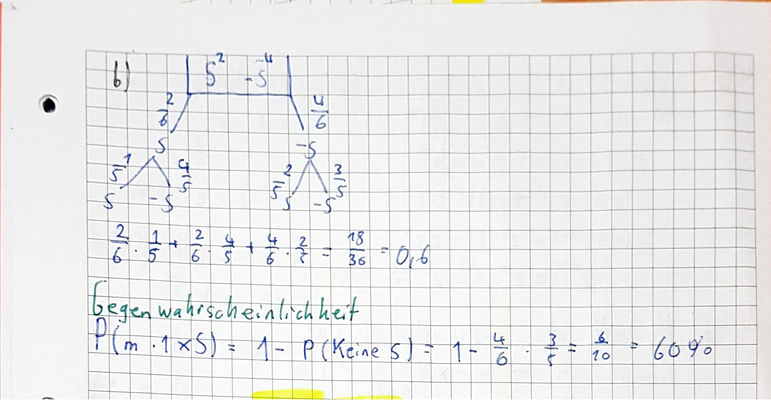 b) 5² -5⁻⁴
2/6 4/6
5 -5
1/5 4/5 2/5 3/5
5 -5 5 -5
2/6 · 1/5 + 2/6 · 4/5 + 4/6 · 2/5 = 18/30 = 0,6
Gegenwahrscheinlichkeit
P(m.1x5) = 1 - P(Keine 5) = 1 - 4/6 · 3/5 = 6/10 = 60%